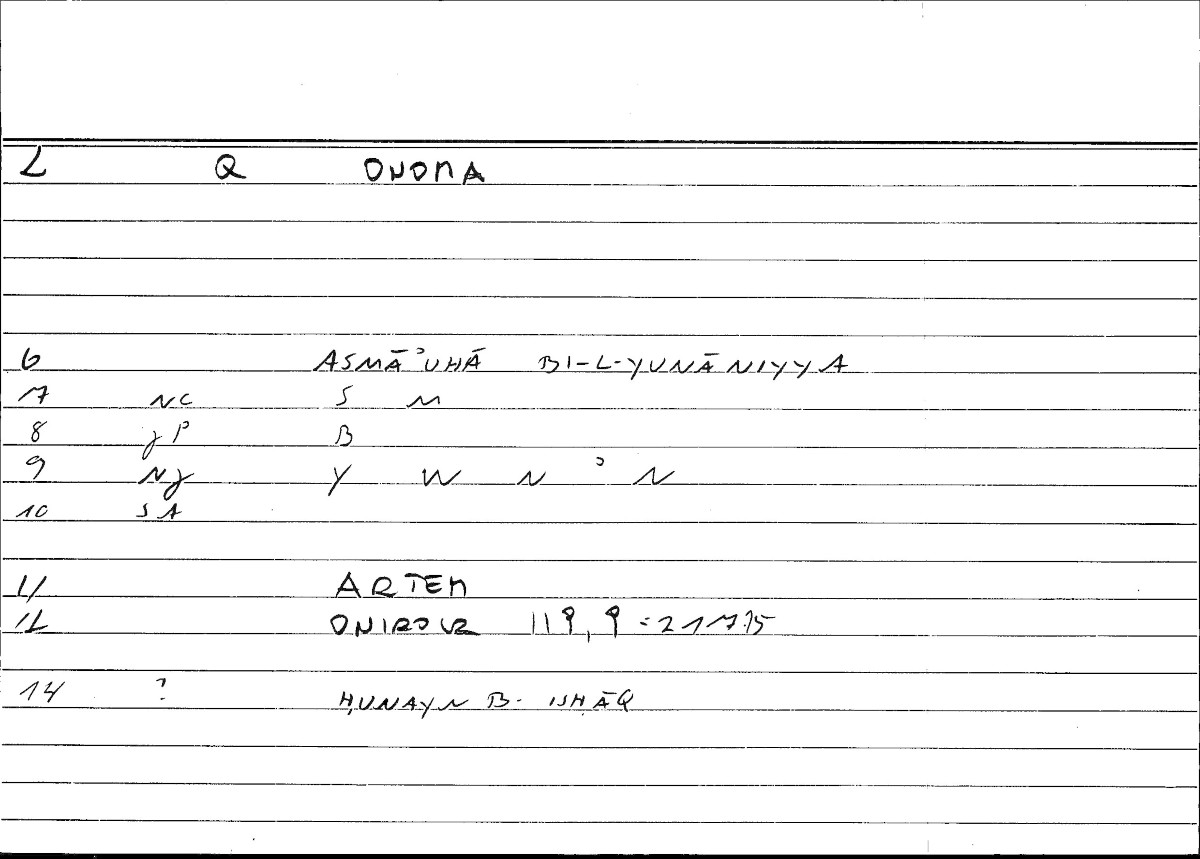 L Q ONOMA
6 ASMĀʾUHĀ BI-L-YUNĀNIYYA
7 NC S M
8 gP B
9 Ng Y W N ʾ N
10 SA
11 ARTEM
12 ONIROCR 119,9=217.15
14 ? ḤUNAYN B. ISḤĀQ